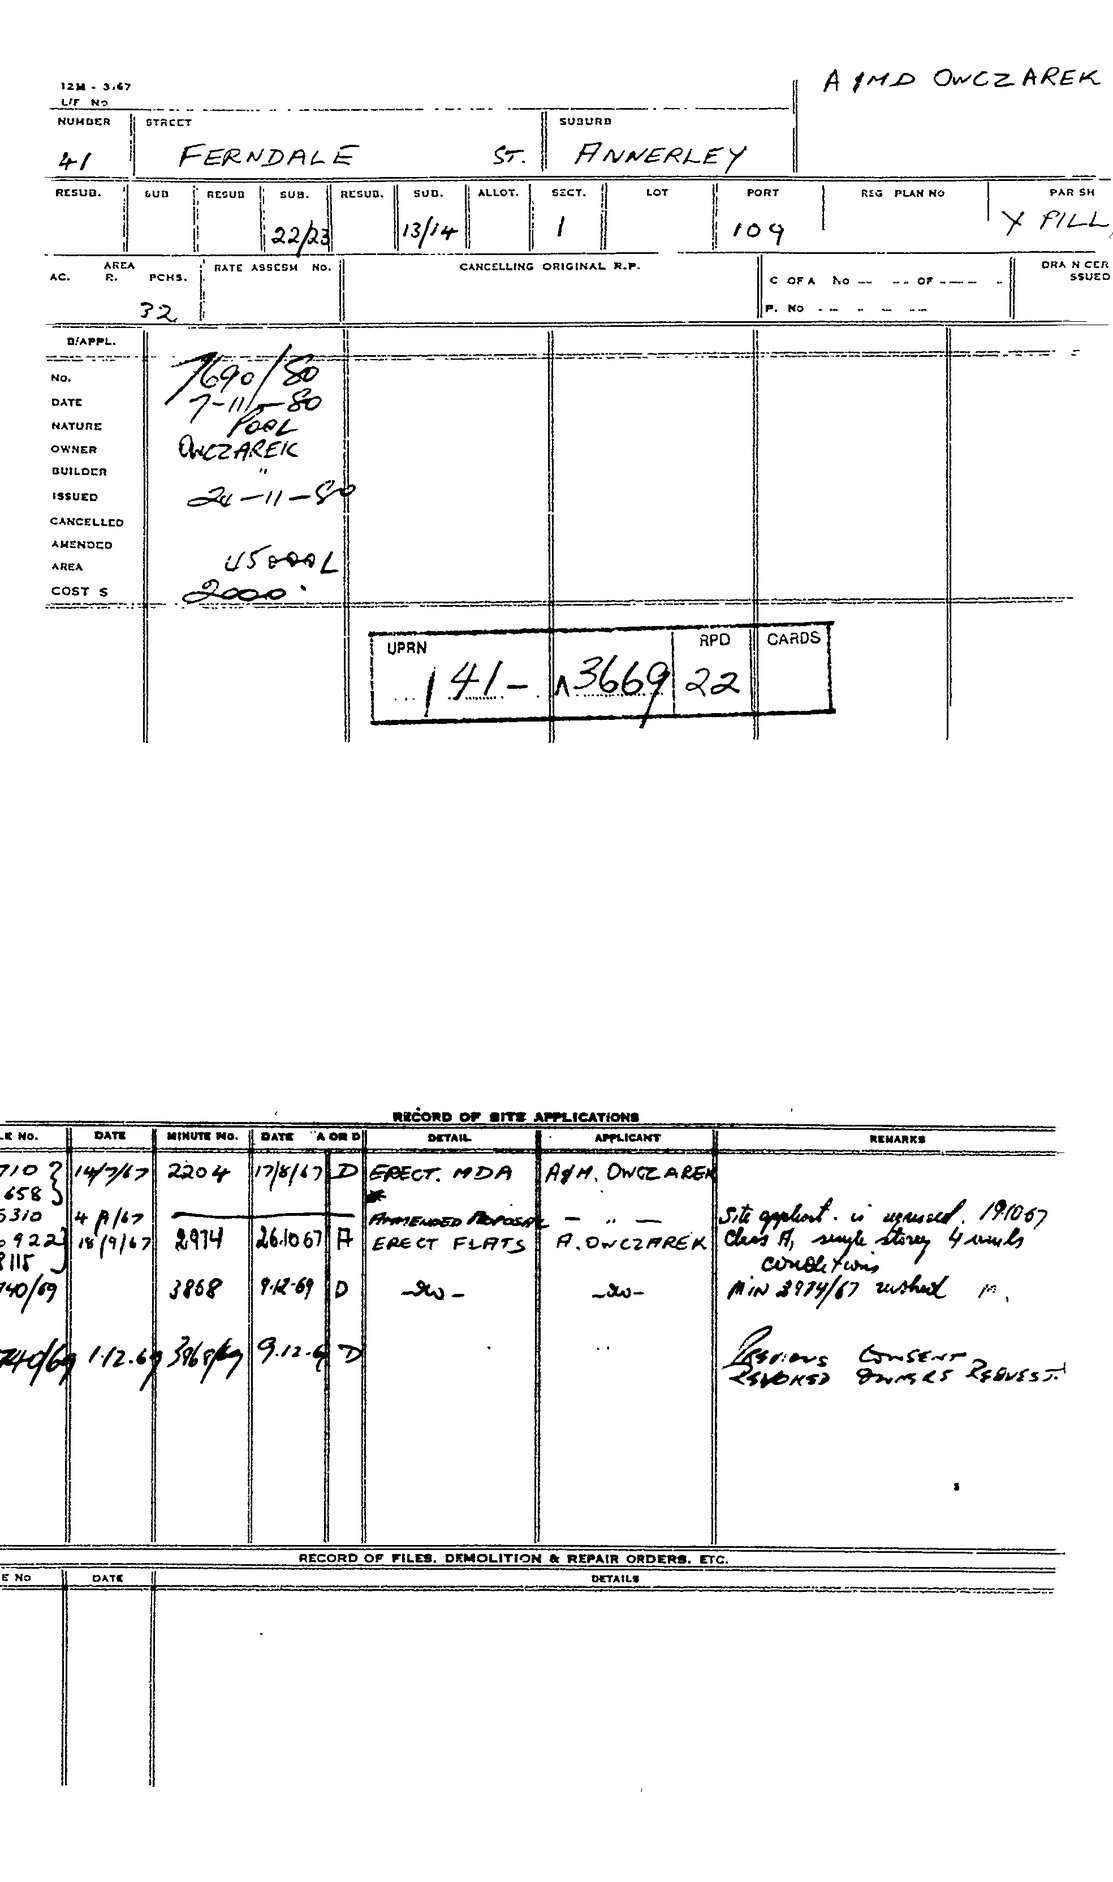 12M - 3.67
L/F No
A & M D OWCZAREK
NUMBER STREET SUBURB
41 FERNDALE ST. ANNERLEY
RESUB. SUB RESUB SUB. RESUB. SUB. ALLOT. SECT. LOT PORT REG PLAN NO PARISH
22/23 13/14 1 109 Y PILLY
AREA
AC. R. PCHS. RATE ASSESM NO. CANCELLING ORIGINAL R.P. C OF A No OF DRAIN CER
ISSUED
32 P. NO
B/APPL.
No. 7690/80
DATE 7-11-80
NATURE POOL
OWNER OWCZAREK
BUILDER "
ISSUED 24-11-80
CANCELLED
AMENDED
AREA 45000L
COST $ 2000.
UPRN RPD CARDS
141- 3669 22
RECORD OF SITE APPLICATIONS
LE NO. DATE MINUTE NO. DATE A OR D DETAIL APPLICANT REMARKS
710 14/7/67 2204 17/8/67 D ERECT. MDA A & M. OWCZAREK
658
5310 4 /67 AMMENDED PROPOSAL — " — Site applicat. is 19.10.67
922 18/9/67 2974 26.10.67 A ERECT FLATS A. OWCZAREK Class A, single storey 4 units
8115 conditions
740/69 3868 9.12.69 D —do— —do— MIN 2974/67
740/69 1.12.69 3868/69 9.12.69 D PREVIOUS CONSENT
REVOKED OWNERS REQUEST.
RECORD OF FILES, DEMOLITION & REPAIR ORDERS, ETC.
E NO DATE DETAILS